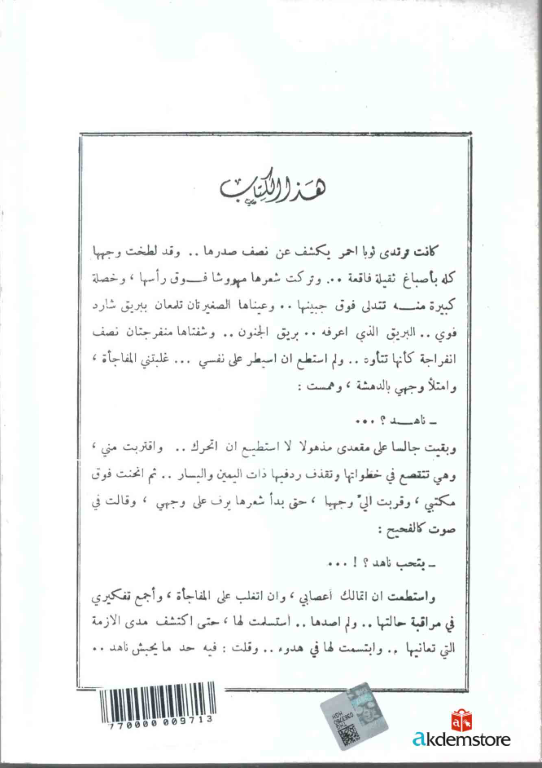 هذا الكتاب
كانت ترتدى ثوبا احمر يكشف عن نصف صدرها .. وقد لطخت وجهها
كله بأصباغ ثقيلة فاقعة .. وتركت شعرها مهووشا فوق رأسها ، وخصلة
كبيرة منه تتدلى فوق جبينها .. وعيناها الصغيرتان تلمعان ببريق شارد
قوي .. البريق الذي اعرفه .. بريق الجنون .. وشفتاها منفرجتان نصف
انفراجة كأنها تتأوه .. ولم استطع ان اسيطر على نفسي ... غلبتني المفاجأة ،
وامتلأ وجهي بالدهشة ، وهمست :
ـ ناهد ؟ ...
وبقيت جالسا على مقعدى مذهولا لا استطيع ان اتحرك .. واقتربت مني ،
وهي تتقصع في خطواتها وتقذف ردفيها ذات اليمين واليسار .. ثم انحنت فوق
مكتبي ، وقربت اليّ وجهها ، حتى بدأ شعرها يرف على وجهي ، وقالت في
صوت كالفحيح :
ـ بتحب ناهد ؟ ! ...
واستطعت ان اتمالك أعصابي ، وان اتغلب على المفاجأة ، وأجمع تفكيري
في مراقبة حالتها .. ولم اصدها .. أستسلمت لها ، حتى اكتشف مدى الازمة
التي تعانيها .. وابتسمت لها في هدوء .. وقلت : فيه حد ما يحبش ناهد ..
770000 009713
akdemstore